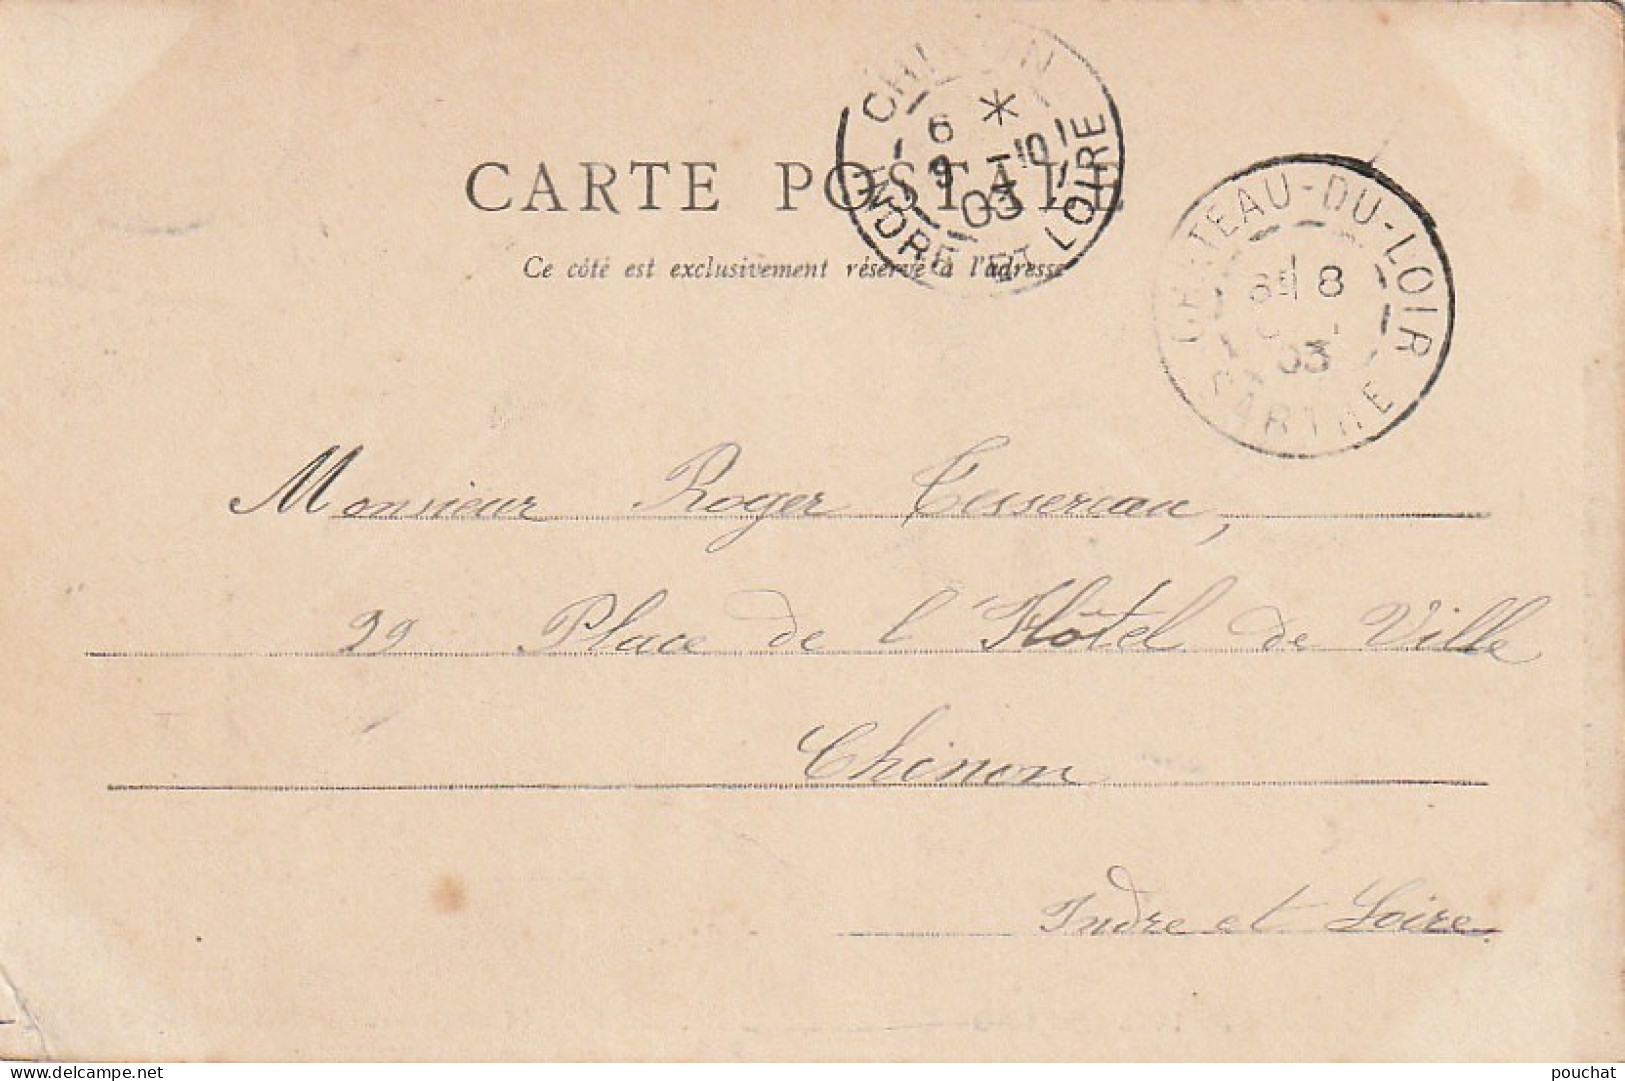 CARTE POSTALE
Ce côté est exclusivement réservé à l'adresse
CHINON
6 *
9 -10
03
INDRE ET LOIRE
CHATEAU-DU-LOIR
8
03
SARTHE
Monsieur Roger Tessereau,
29 Place de l'Hôtel de Ville
Chinon
Indre et Loire.
www.delcampe.net
pouchat